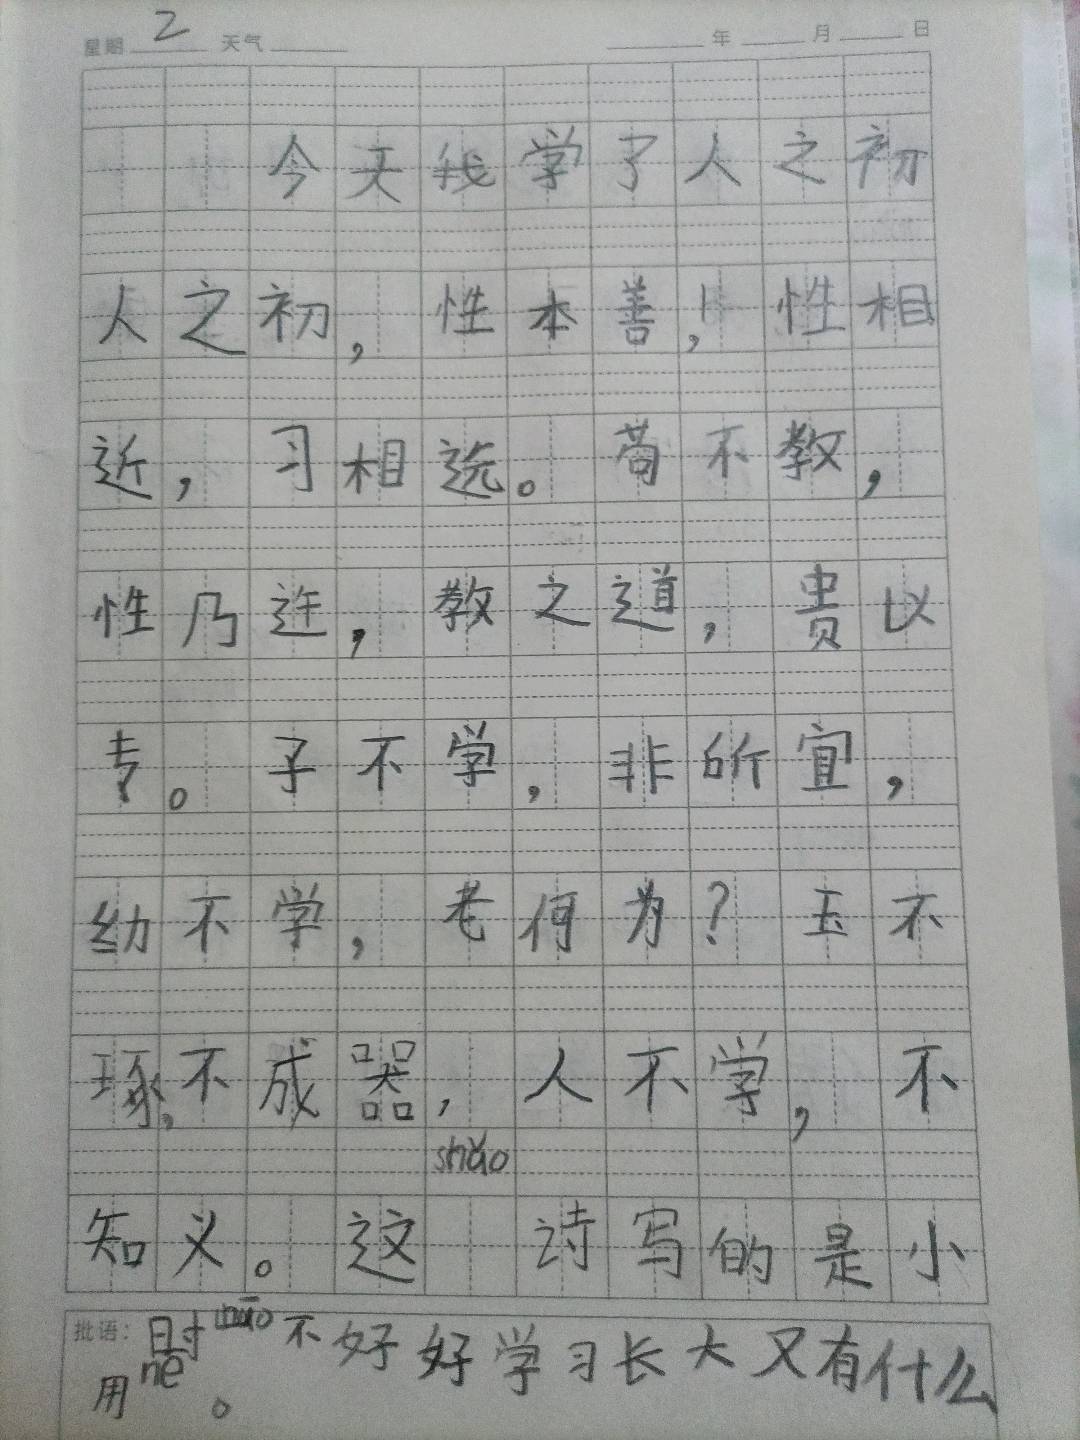 星期 2 天气 年 月 日
今天我学了人之初
人之初，性本善，性相
近，习相选。苟不教，
性乃迁，教之道，贵以
专。子不学，非所宜，
幼不学，老何为？玉不
琢，不成器，人不学，不
shǎo
知义。这 诗写的是小
批语：时 不好好学习长大又有什么
用 ne 。